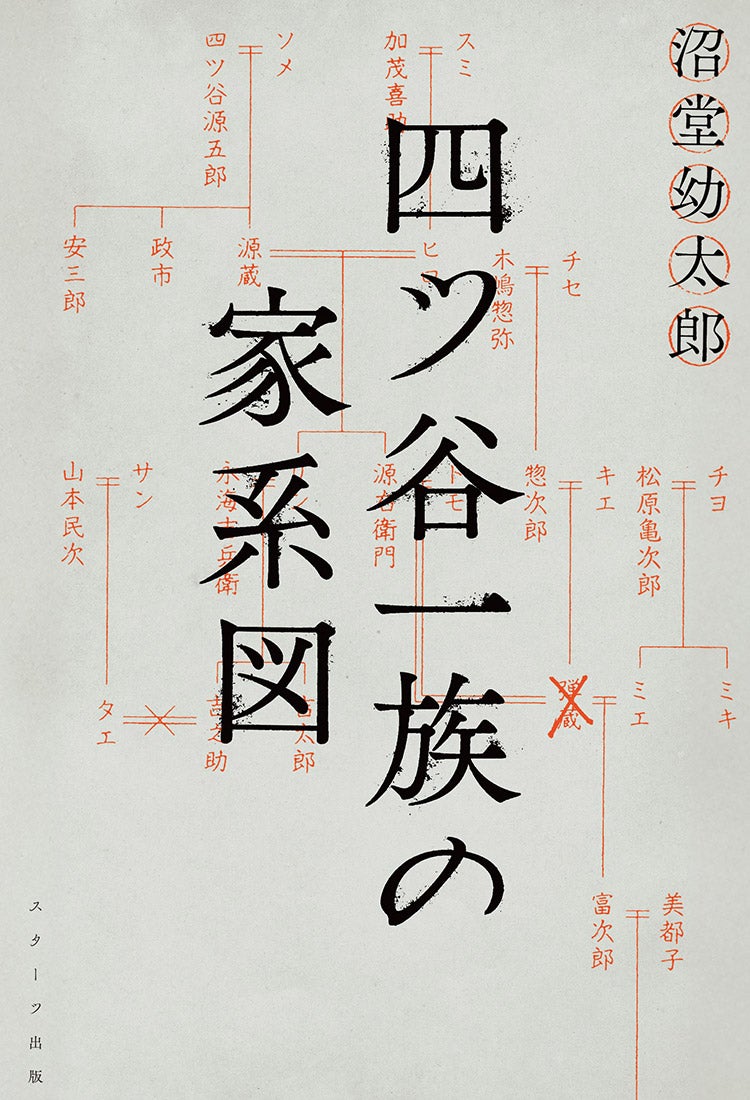 沼堂幼太郎
四ツ谷一族の
家系図
スミ
加茂喜助
ソメ
四ツ谷源五郎
チセ
木嶋惣弥
源蔵
政市
安三郎
チヨ
松原亀次郎
キエ
惣次郎
トモ
源右衛門
サン
山本民次
ミキ
ミエ
弾蔵
吉太郎
吉之助
タエ
美都子
富次郎
スターツ出版